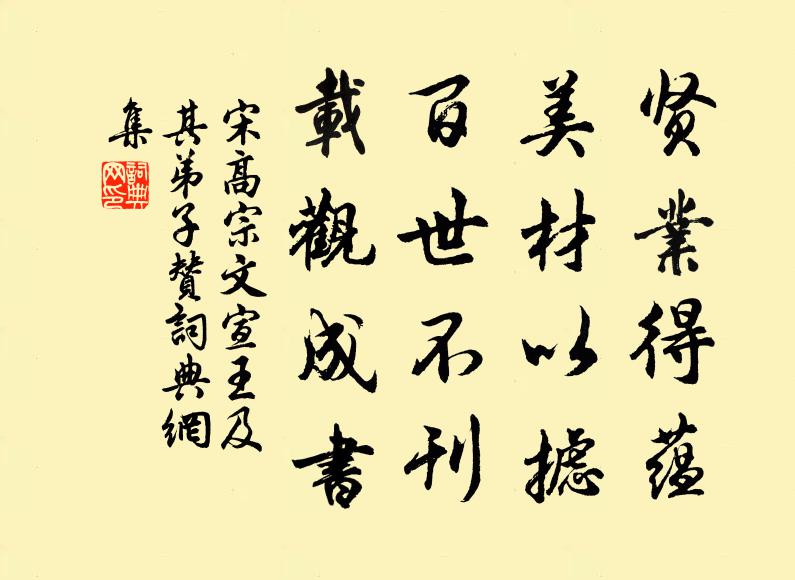 贤業得蕴
美材以攄
百世不刊
載觀成書
宋高宗文宣王及
其弟子贊詞典網
集
詞典
网印